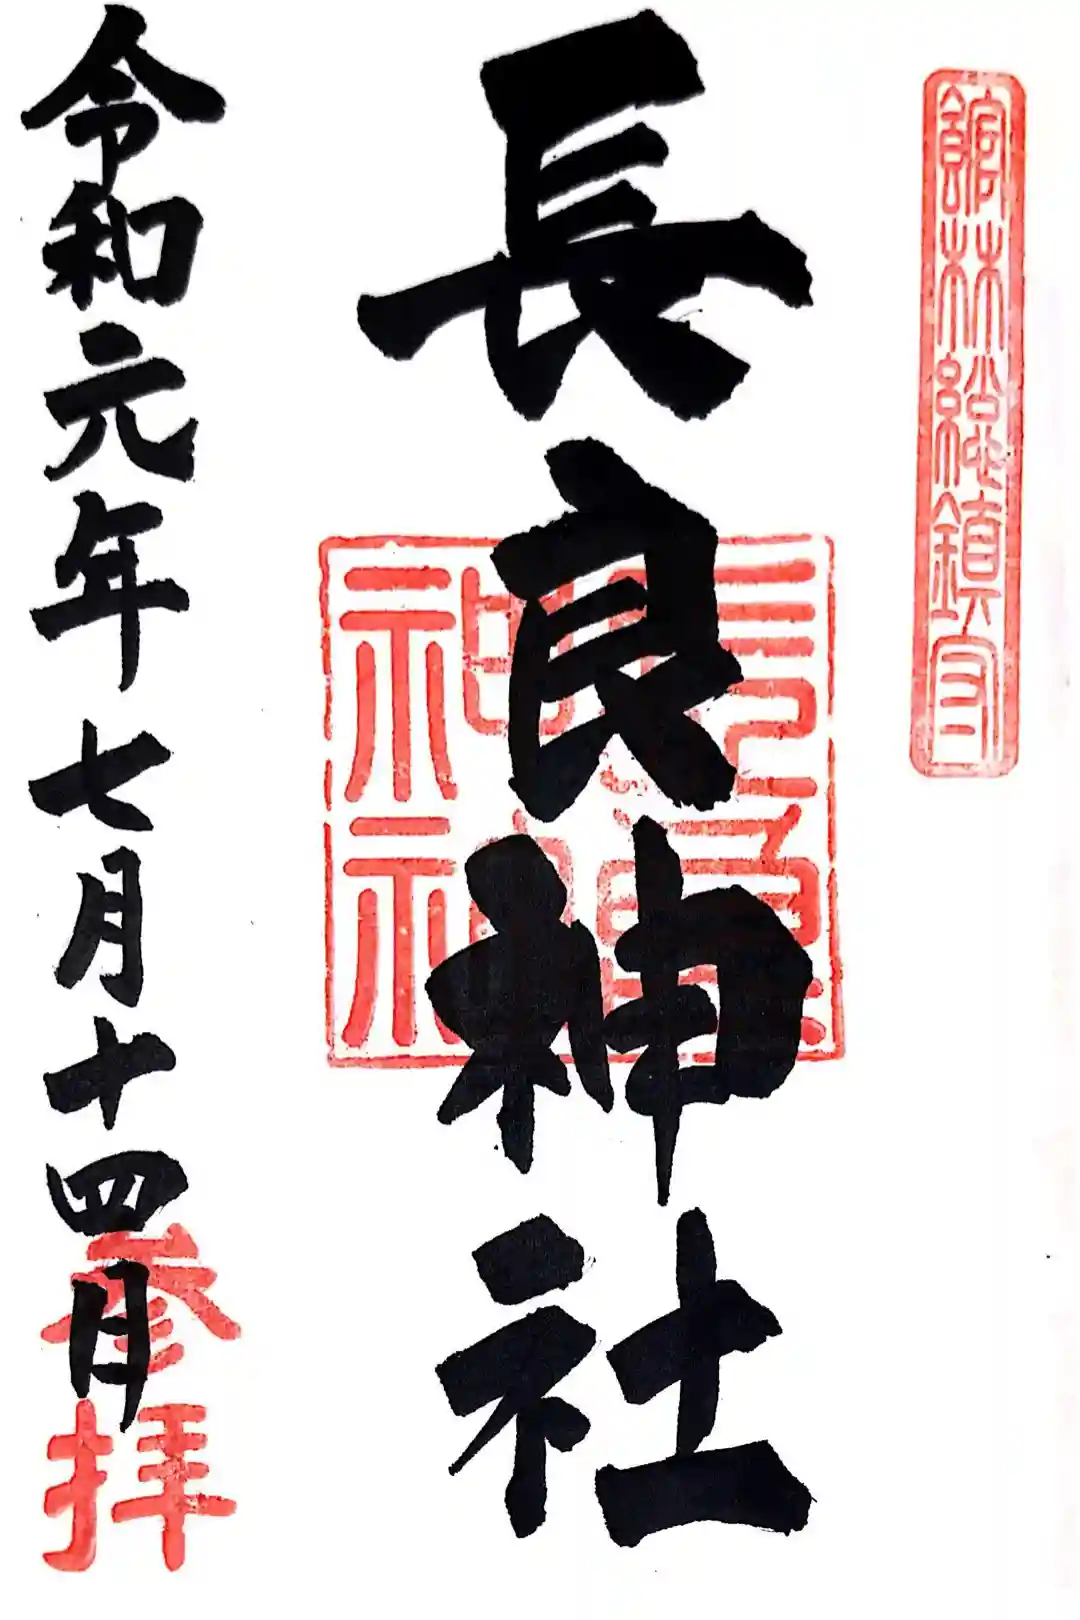 館林総鎮守
長良神社
長良神社
令和元年七月十四日
参拝